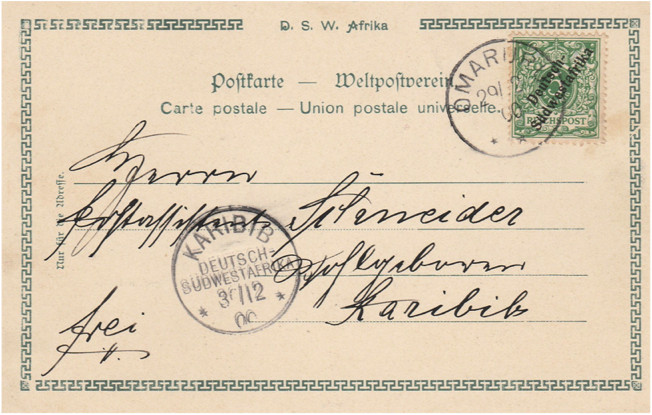 D. S. W. Afrika
Postkarte — Weltpostverein
Carte postale — Union postale universelle
OMARURU
29/
00
Deutsch-
Südwestafrika
REICHSPOST
Nur für die Adresse.
Herrn
Postassistent Schneider
Wohlgeboren
Karibib
frei
KARIBIB
DEUTSCH-
SÜDWESTAFRIKA
30/12
00